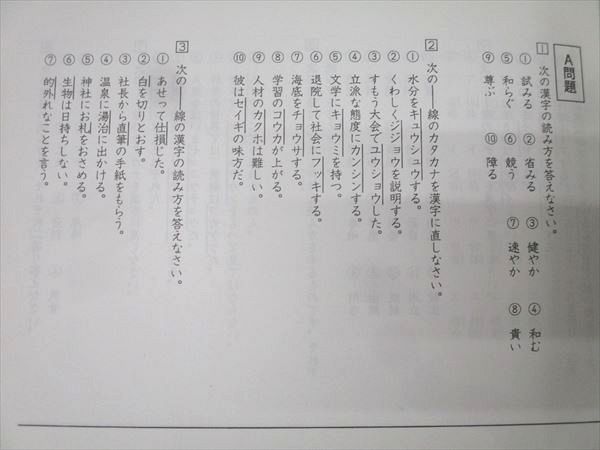 A問題
1 次の漢字の読み方を答えなさい。
① 試みる ② 省みる ③ 健やか ④ 和む
⑤ 和らぐ ⑥ 競う ⑦ 速やか ⑧ 貴い
⑨ 尊ぶ ⑩ 障る
2 次の――線のカタカナを漢字に直しなさい。
① 水分をキュウシュウする。
② くわしくジジョウを説明する。
③ すもう大会でユウショウした。
④ 立派な態度にカンシンする。
⑤ 文学にキョウミを持つ。
⑥ 退院して社会にフッキする。
⑦ 海底をチョウサする。
⑧ 学習のコウカが上がる。
⑨ 人材のカクホは難しい。
⑩ 彼はセイギの味方だ。
3 次の――線の漢字の読み方を答えなさい。
① あせって仕損じた。
② 白を切りとおす。
③ 社長から直筆の手紙をもらう。
④ 温泉に湯治に出かける。
⑤ 神社にお札をおさめる。
⑥ 生物は日持ちしない。
⑦ 的外れなことを言う。